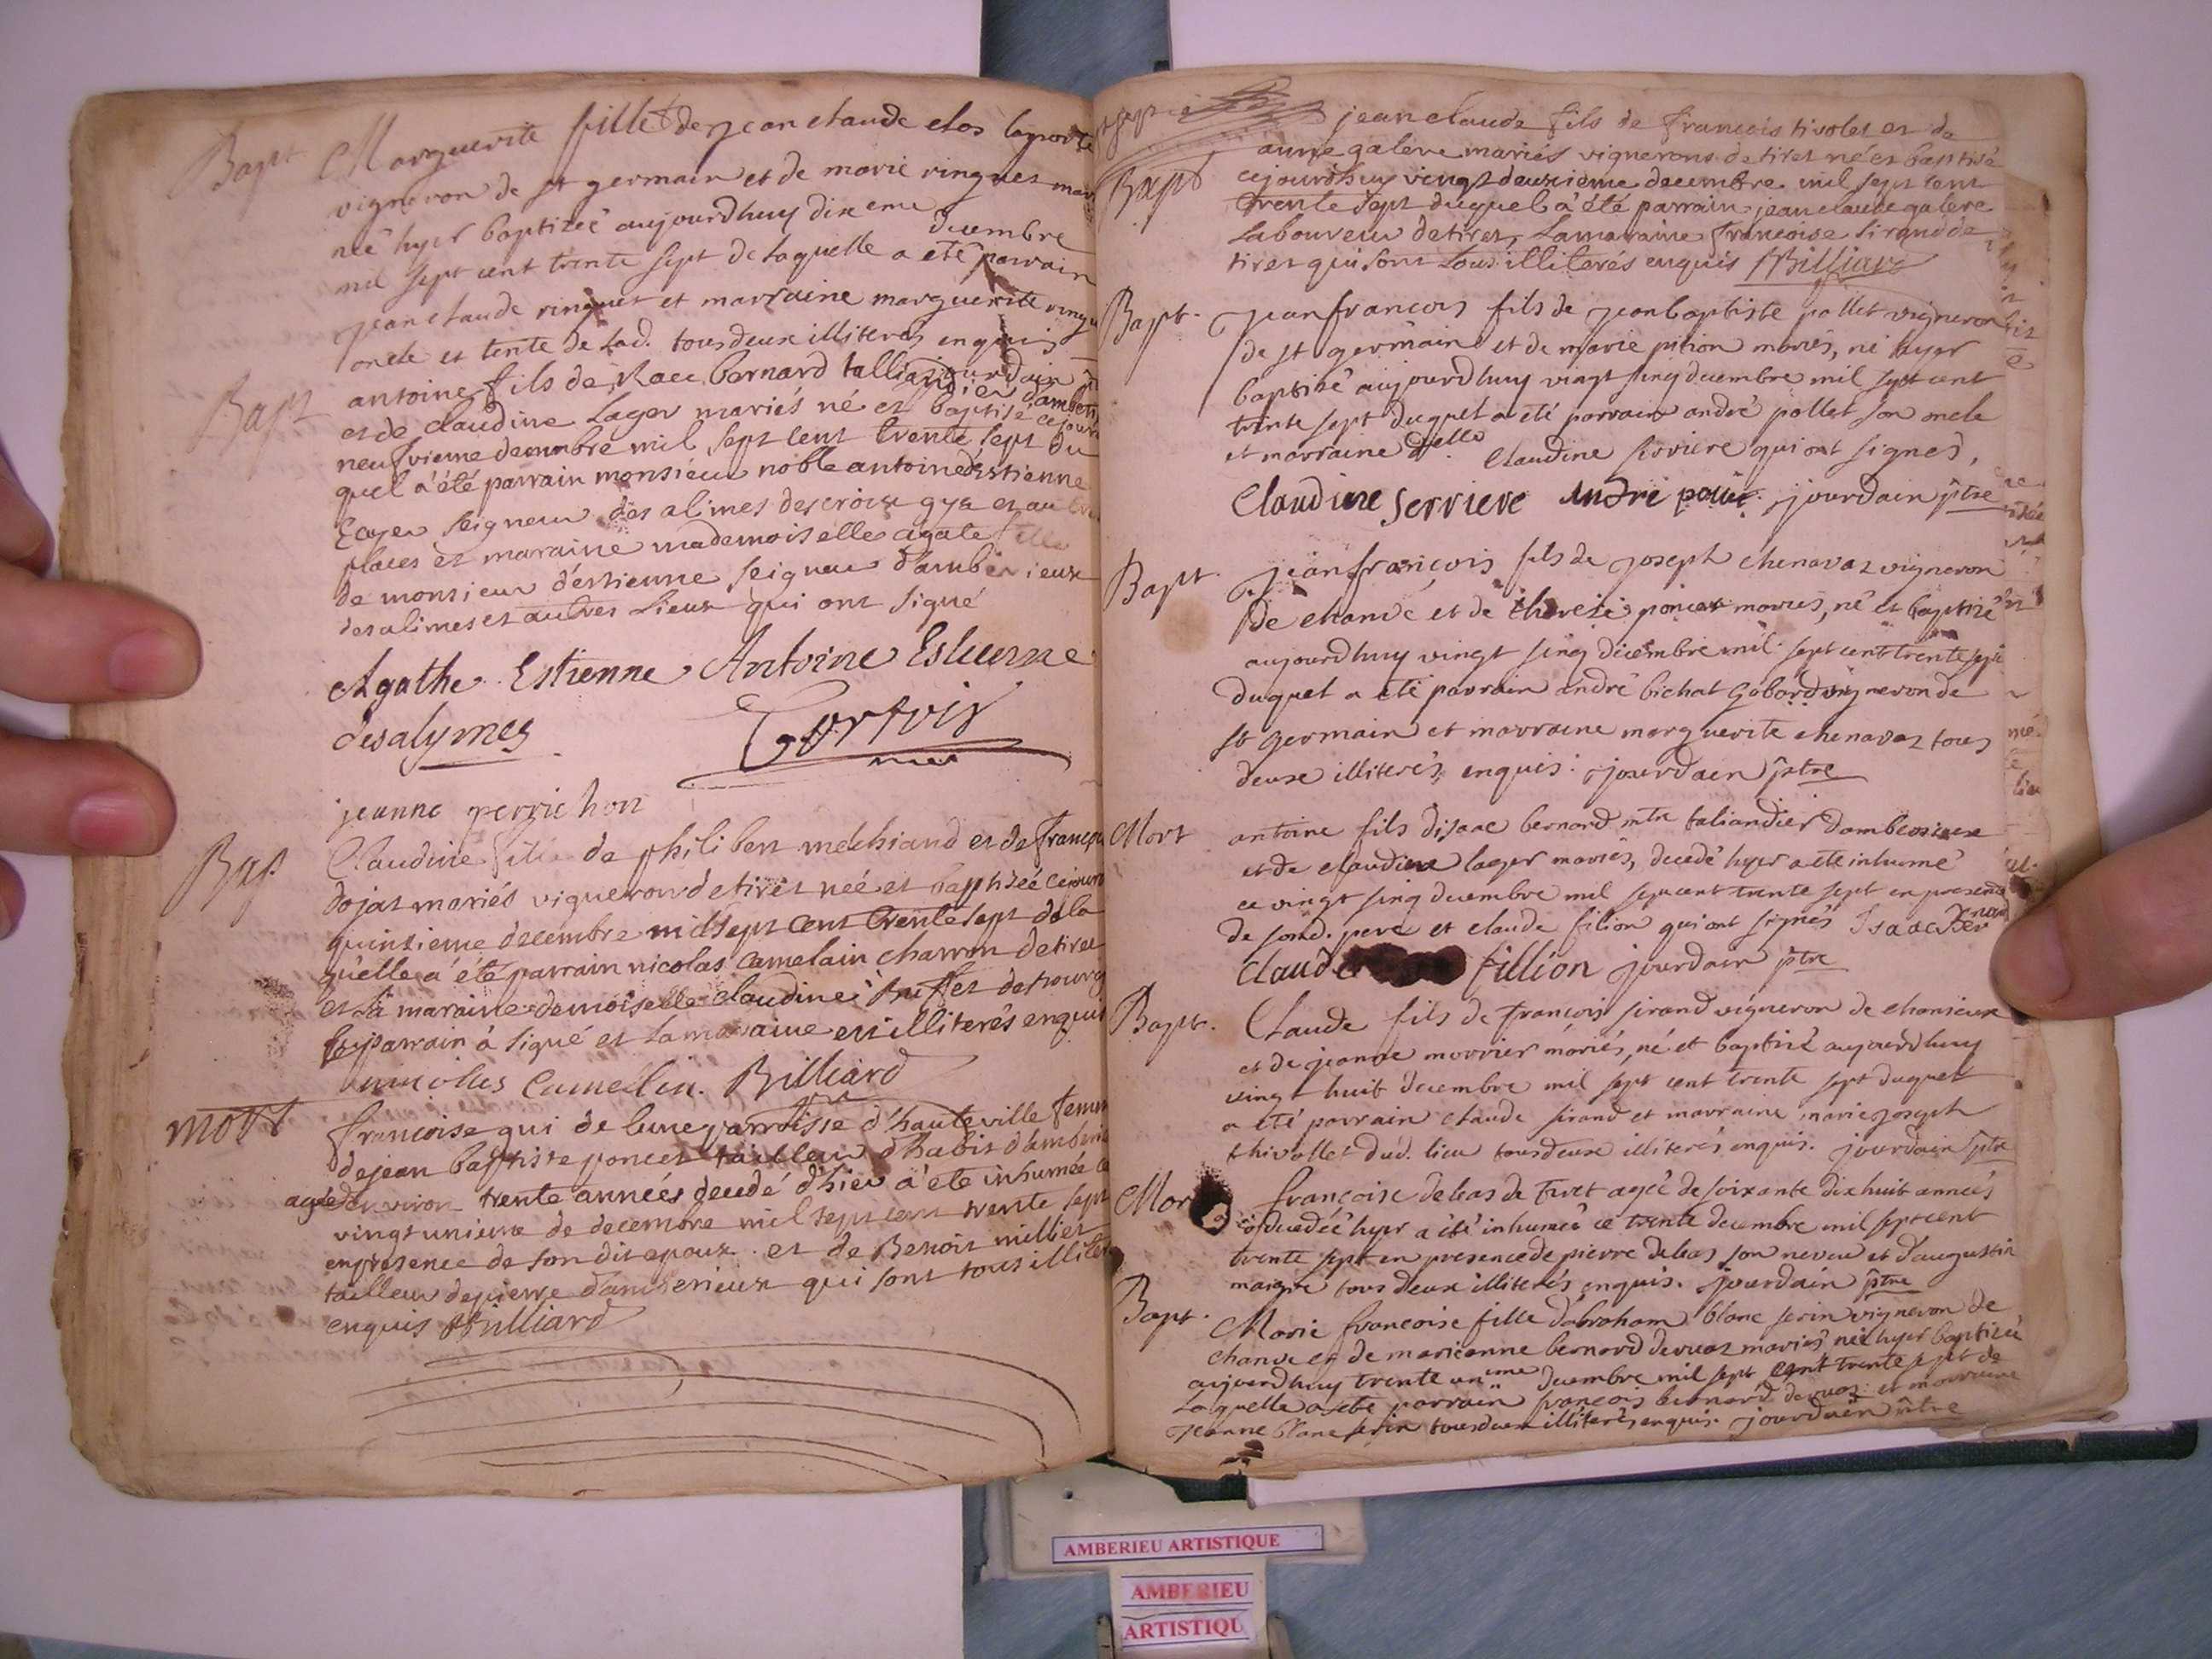 Bapt
Marguerite fille de jean claude clos laporte
vigneron de st germain et de marie ringuet mar
née hyer baptizée aujourdhuy dixeme decembre
mil sept cent trente sept de laquelle a eté parrain
jean claude ringuet et marraine marguerite ringu
oncle et tente de lad. tous deux illiteres enquis
jourdain
Bapt
antoine fils de bernard talliandier damberi
et de claudine Lager mariés né et baptisé cejour
neufvieme decembre mil sept cent trente sept du
quel a'été parrain monsieur noble antoine destienne
Ecuyer seigneur des alimes descroix gya et autre
places et maraine mademoiselle agate fille
de monsieur d'estienne seigneur d'amberieux
des alimes et autres Lieux qui ont signé
Agathe Estienne Antoine Estienne
desalymes
jeanne perrichon
Bap
Claudine fille de philibert melchiand et de françoi
dojat mariés vigneron de tiret née et baptisée cejourd
quinzieme decembre mil sept cent trente sept de la
quelle a'été parrain nicolas camelain charron de tiret
et la maraine demoiselle claudine
le parrain à signé et la maraine est illiterés enquis
nicolas Camellin. Billiard
mort
françoise qui de lune parroisse d'hauteville femme
de jean baptiste poncet tailleur d'habit d'amberie
agée denviron trente années decedé d'hier a'été inhumée ce
vingt unieme de decembre mil sept cent trente sept
en presence de son dit epoux et de Benoit milliet
tailleur de pierre d'amberieux qui sont tous illiteré
enquis Billiard
jean claude fils de françois tivolet et de
Bapt
anne galere mariés vignerons de tiret né et baptisé
cejourdhuy vingt deuxieme decembre mil sept cent
trente sept duquel a'été parrain jean claude galere
laboureur de tiret, la maraine françoise sirand de
tiret qui sont tous illiterés enquis Billiard
Bapt.
jean françois fils de jean baptiste pollet vigneron
de st germain et de marie pition mariés, né hyer
baptisé aujourdhuy vingt sinq decembre mil sept cent
trente sept duquel a eté parrain andré pollet son oncle
et marraine delle Claudine serriere qui ont signés,
Claudine Serriere andré jourdain ptre
Bapt.
jean françois fils de joseph chenavaz vigneron
de chanve et de therese poncet mariés, né et baptizé
aujourdhuy vingt sinq decembre mil sept cent trente sept
duquel a eté parrain andré bichat Gobard vigneron de
st germain et marraine marguerite chenavaz tous
deux illiterés enquis. jourdain ptre
Mort
antoine fils disaac bernard mtre taliandier damberieux
et de claudine lager mariés, decedé hyer a ete inhumé
ce vingt sinq decembre mil sept cent trente sept en presence
de sond. pere et claude filion qui ont signés Isaac Bernard
Claude fillion jourdain ptre
Bapt.
Claude fils de françois sirand vigneron de
et de jeanne morrier mariés, né et baptizé aujourdhuy
vingt huit decembre mil sept cent trente sept duquel
a eté parrain claude sirand et marraine marie joseph
thivollet dud. lieu tous deux illiterés enquis. jourdain ptre
Mort
françoise debeas de tiret agée de soixante dix huit années
decedée hyer a été inhumée ce trente decembre mil sept cent
trente sept en presence de pierre debeas son neveu et d'augustin
maigre tous deux illiterés enquis. jourdain ptre
Bapt.
Marie françoise fille dabraham blanc serin vigneron de
chanve et de marieanne bernard devaz mariés née hyer baptizée
aujourdhuy trente unime decembre mil sept cent trente sept de
laquelle a eté parrain françois bernard devaz et marraine
jeanne blanc serin tous deux illiterés enquis. jourdain ptre
AMBERIEU ARTISTIQUE
AMBERIEU
ARTISTIQU